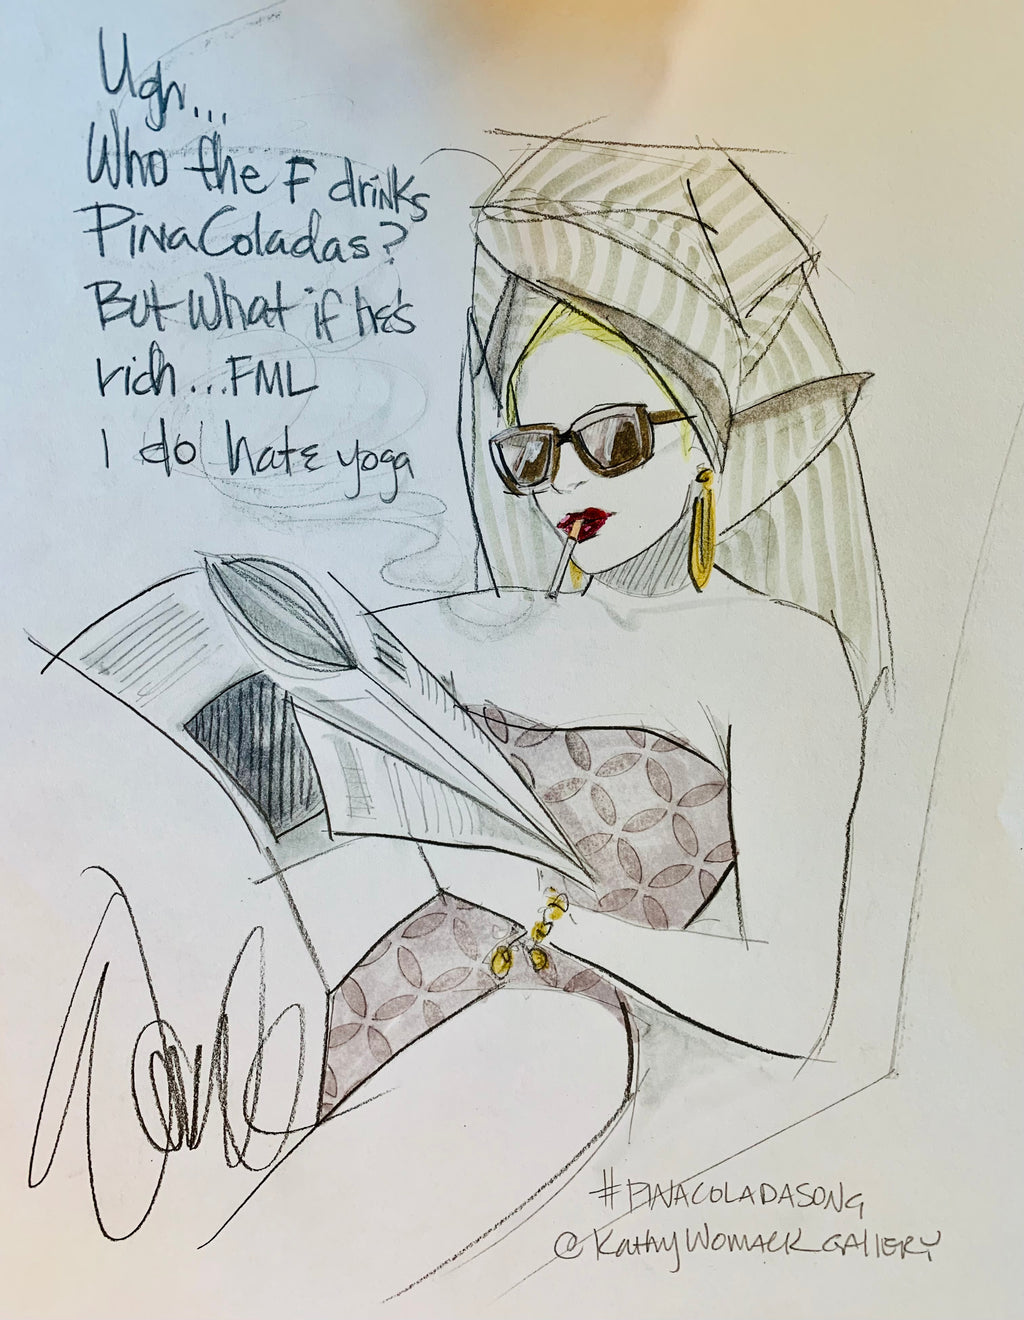 Ugh...
Who the F drinks
Pina Coladas?
But what if he's
rich...FML
I do hate yoga
#PINACOLADASONG
@KathyWomackGallery